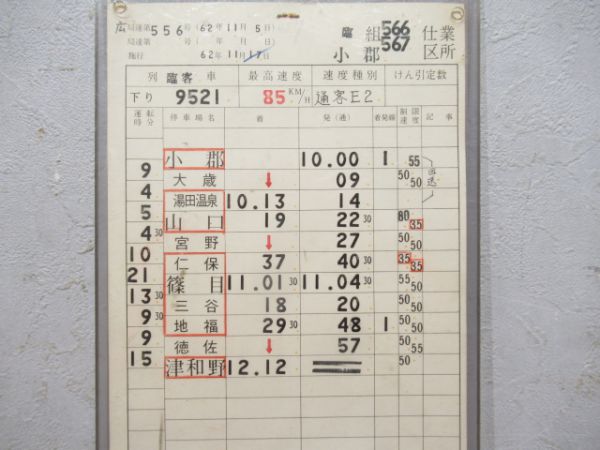 広 局達第 556 号 (62年11月5日)
局達第 号 ( 年 月 日)
施行 62年11月17日
臨 組 566 567 仕業
小郡 区所
列 臨客 車 最高速度 速度種別 けん引定数
下り 9521 85 KM/H 通客E2
運転時分 停車場名 着 発(通) 着発線 制限速度 記事
小郡 10.00 1 55
9
大歳 ↓ 09 50 50
4
湯田温泉 10.13 14
5
山口 19 22 30 60 35
4 30
宮野 ↓ 27 50 50
10
仁保 37 40 30 35 35
21
篠目 11.01 30 11.04 30 55 50
13 30
三谷 18 20 50 50
9
地福 29 30 48 1 50 50
9 30
徳佐 ↓ 57 50 55
15
津和野 12.12 50